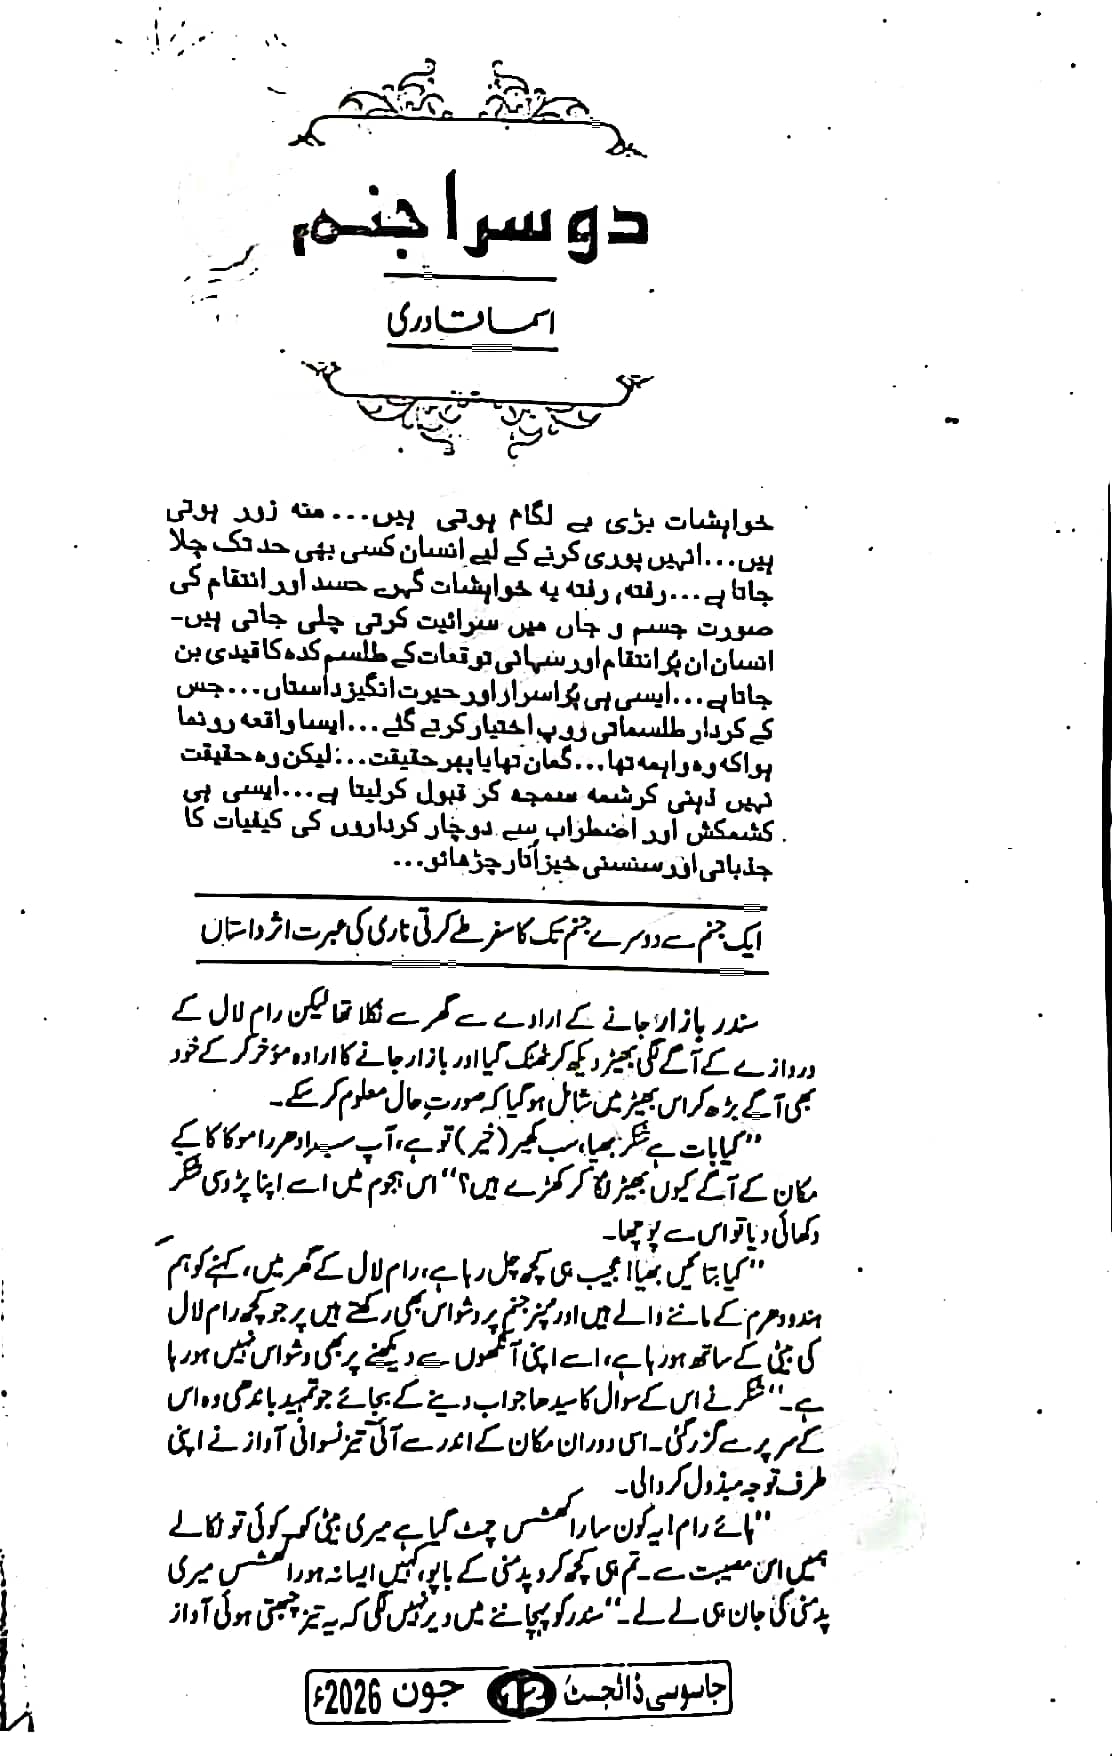 دوسرا جنم
اسما قادری
خواہشات بڑی بے لگام ہوتی ہیں... منہ زور ہوتی
ہیں... انہیں پوری کرنے کے لیے انسان کسی بھی حد تک چلا
جاتا ہے... رفتہ رفتہ یہ خواہشات گہرے حسد اور انتقام کی
صورت جسم و جاں میں سرائیت کرتی چلی جاتی ہیں۔
انسان ان پُر انتقام اور سہانی توقعات کے طلسم کدہ کا قیدی بن
جاتا ہے... ایسی ہی پُراسرار اور حیرت انگیز داستان... جس
کے کردار طلسماتی روپ اختیار کرتے گئے... ایسا واقعہ رونما
ہوا کہ وہ واہمہ تھا... گمان تھا یا پھر حقیقت...: لیکن وہ حقیقت
نہیں ذہنی کرشمہ سمجھ کر قبول کر لیتا ہے... ایسی ہی
کشمکش اور اضطراب سے دوچار کرداروں کی کیفیات کا
جذباتی اور سنسنی خیز اتار چڑھائو...
ایک جنم سے دوسرے جنم تک کا سفر طے کرتی ناری کی عبرت اثر داستاں
سندر بازار جانے کے ارادے سے گھر سے نکلا تھا لیکن رام لال کے
دروازے کے آگے لگی بھیڑ دیکھ کر ٹھٹک گیا اور بازار جانے کا ارادہ مؤخر کر کے خود
بھی آگے بڑھ کر اس بھیڑ میں شامل ہو گیا کہ صورتِ حال معلوم کر سکے۔
”کیا بات ہے شنکر بھیا، سب کھیر (خیر) تو ہے، آپ سب ادھر راموکاکا کے
مکان کے آگے کیوں بھیڑ لگا کر کھڑے ہیں؟“ اس ہجوم میں اسے اپنا پڑوسی شنکر
دکھائی دیا تو اس سے پوچھا۔
”کیا بتائیں بھیا! عجیب ہی کچھ چل رہا ہے، رام لال کے گھر میں، کہنے کو ہم
ہندو دھرم کے ماننے والے ہیں اور پنر جنم پر وشواس بھی رکھتے ہیں پر جو کچھ رام لال
کی بیٹی کے ساتھ ہو رہا ہے، اسے اپنی آنکھوں سے دیکھنے پر بھی وشواس نہیں ہو رہا
ہے۔“ شنکر نے اس کے سوال کا سیدھا جواب دینے کے بجائے جو تمہید باندھی وہ اس
کے سر پر سے گزر گئی۔ اسی دوران مکان کے اندر سے آتی تیز نسوانی آواز نے اپنی
طرف توجہ مبذول کروالی۔
”ہائے رام! یہ کون سا راکھشس چمٹ گیا ہے میری بیٹی کو۔ کوئی تو نکالے
ہمیں اس مصیبت سے۔ تم ہی کچھ کرو پدمنی کے باپو، کہیں ایسا نہ ہو راکھشس میری
پدمنی کی جان ہی لے لے۔“ سندر کو پہچاننے میں دیر نہیں لگی کہ یہ تیز چبھتی ہوئی آواز
جاسوسی ڈائجسٹ جون 2026ء